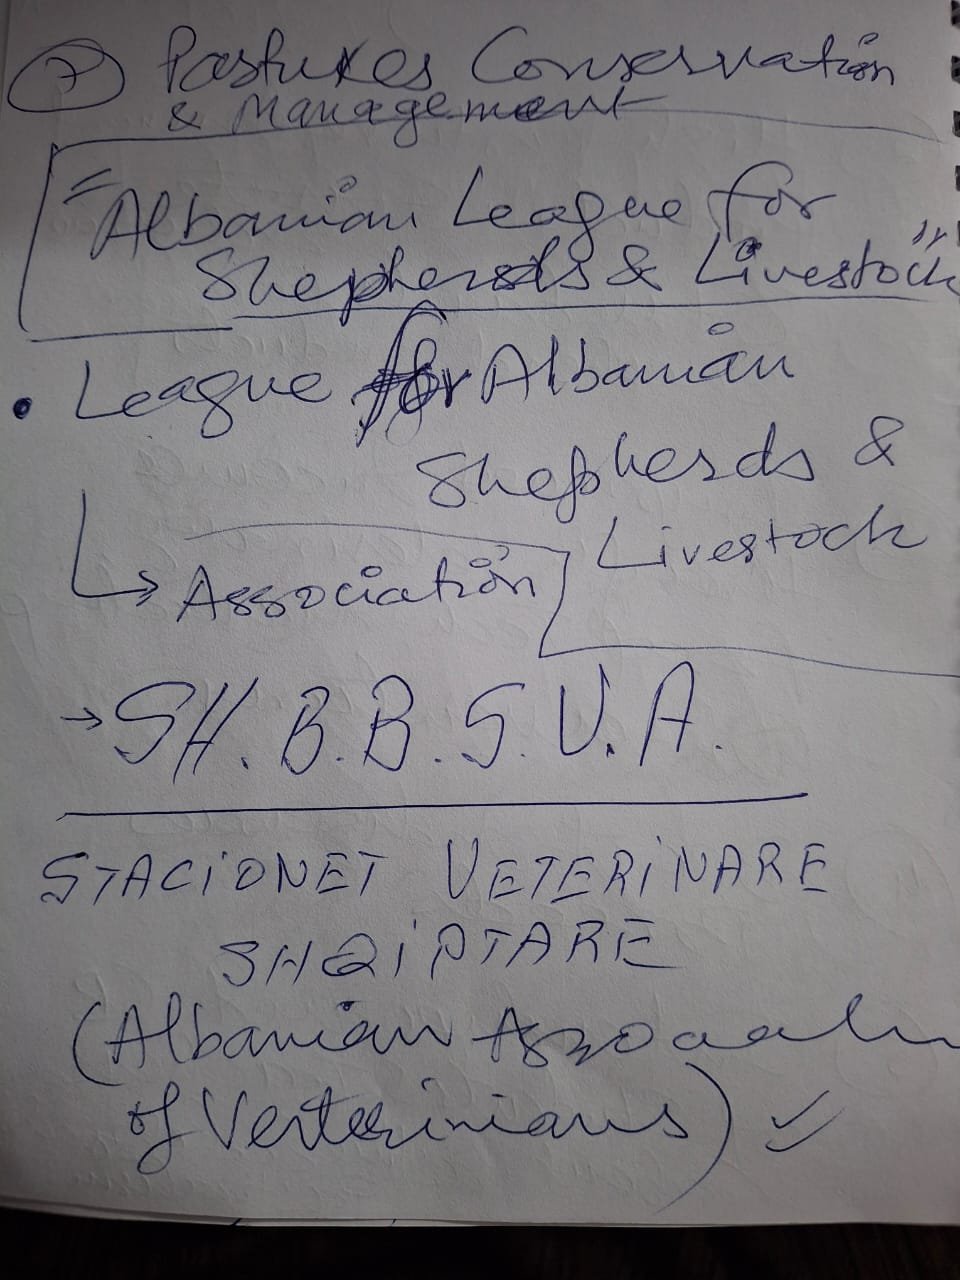 7 Pastures Conservation
& Management
= Albanian League for
Shepherds & Livestock
• League for Albanian
Shepherds &
Livestock
↳ Association
→ SH.B.B.S.V.A.
STACiONET VETERiNARE
SHQiPTARE
(Albanian
of Verterinians) ✓